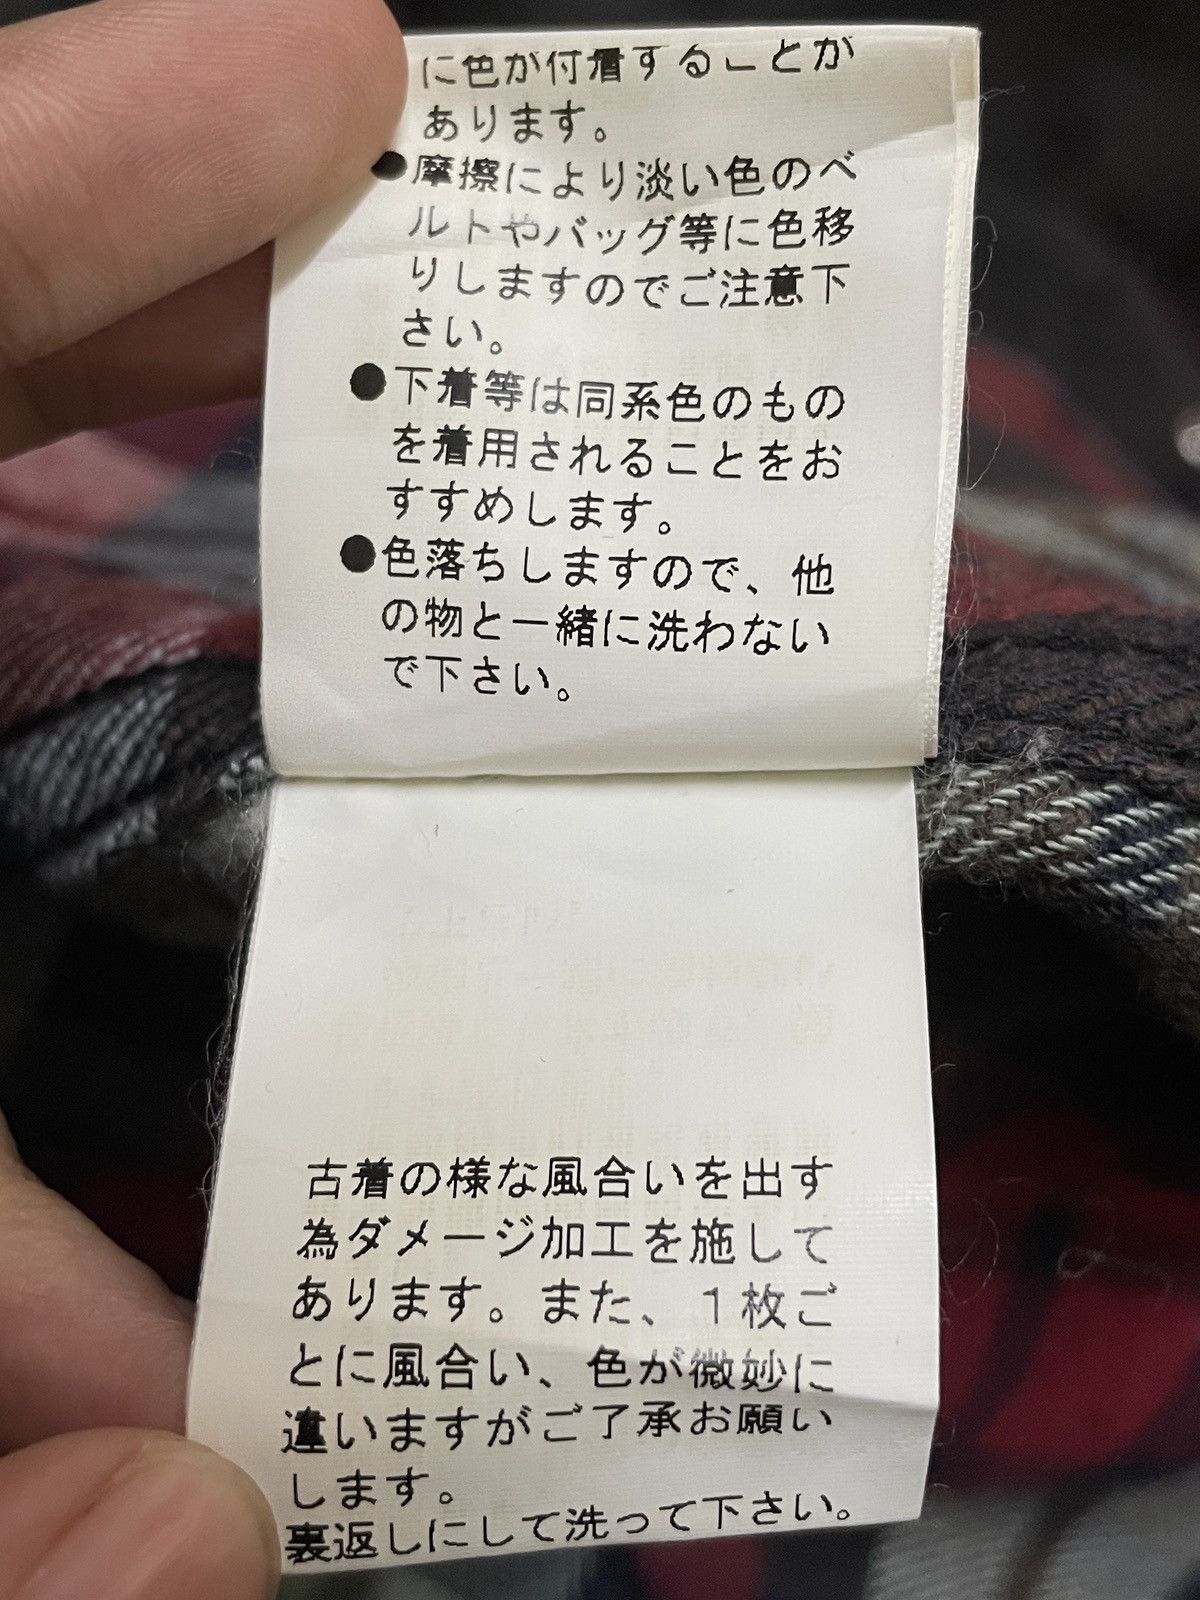 に色が付着することが
あります。
●摩擦により淡い色のベ
ルトやバッグ等に色移
りしますのでご注意下
さい。
●下着等は同系色のもの
を着用されることをお
すすめします。
●色落ちしますので、他
の物と一緒に洗わない
で下さい。
古着の様な風合いを出す
為ダメージ加工を施して
あります。また、1枚ご
とに風合い、色が微妙に
違いますがご了承お願い
します。
裏返しにして洗って下さい。